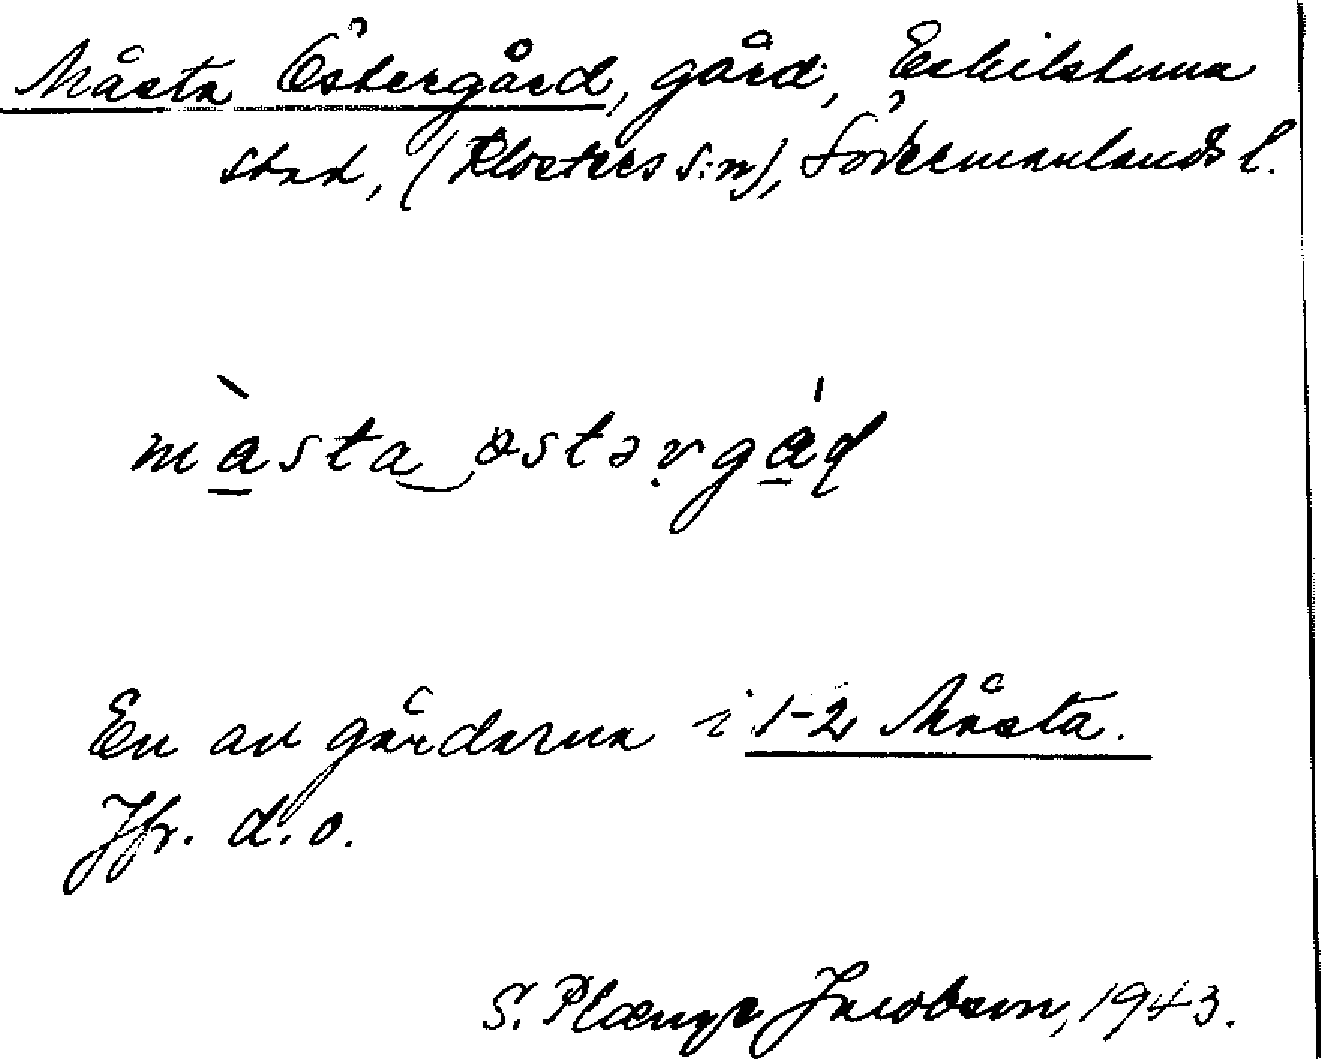 Måsta Östergård, gård, Eskilstuna
stad, (Klosters s:n), Södermanlands l.
màsta_östərgád
En av gårdarna i 1-2 Måsta.
Jfr. d. o.
S. Plænge Jacobson, 1943.